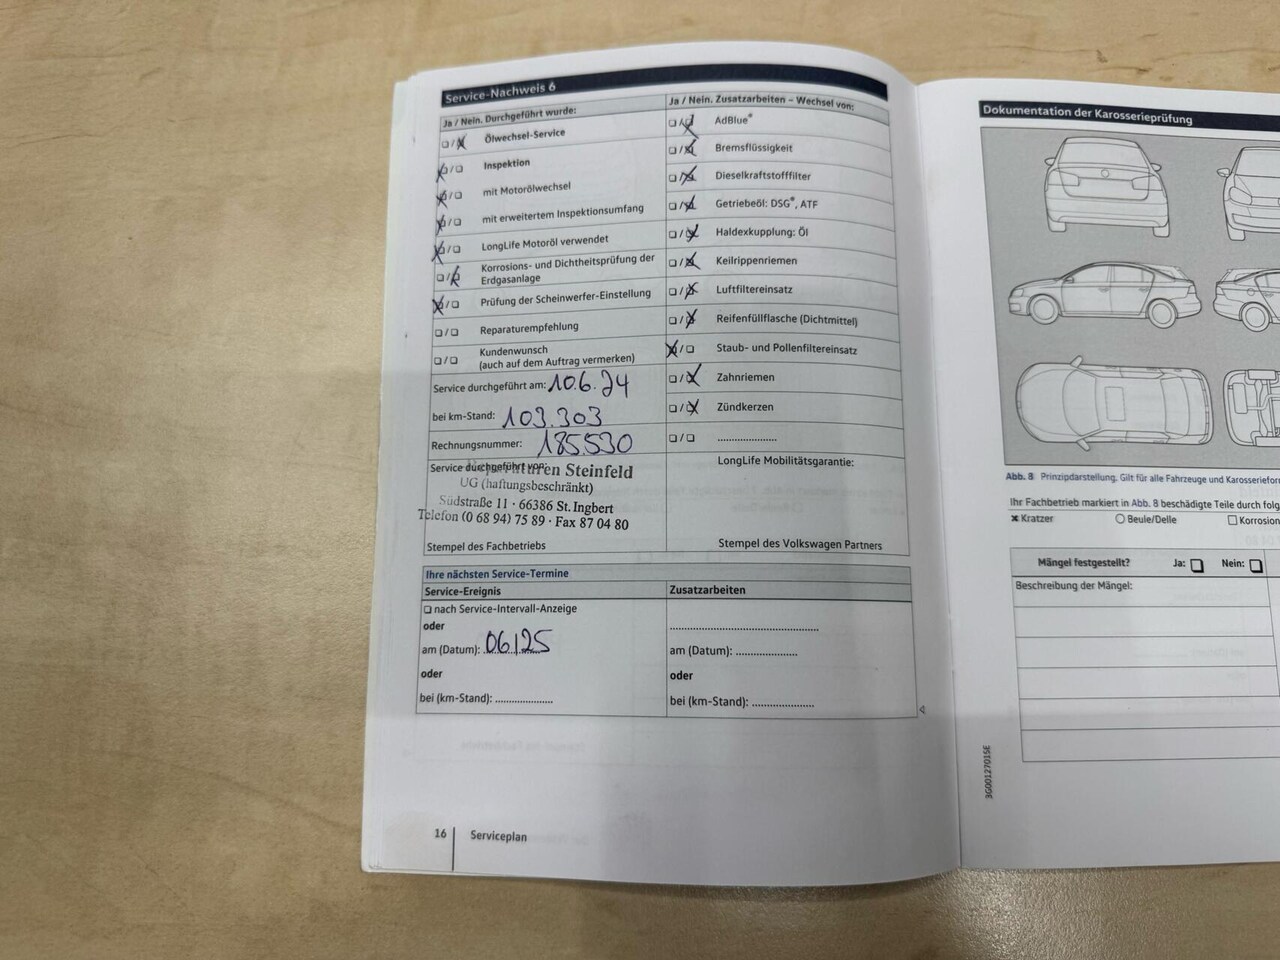 Service-Nachweis 6
Ja / Nein. Durchgeführt wurde:
Ölwechsel-Service
Inspektion
mit Motorölwechsel
mit erweitertem Inspektionsumfang
LongLife Motoröl verwendet
Korrosions- und Dichtheitsprüfung der
Erdgasanlage
Prüfung der Scheinwerfer-Einstellung
Reparaturempfehlung
Kundenwunsch
(auch auf dem Auftrag vermerken)
Service durchgeführt am: 10.6.24
bei km-Stand: 103.303
Rechnungsnummer: 185530
Service durchgeführt von:
Steinfeld
UG (haftungsbeschränkt)
Südstraße 11 · 66386 St. Ingbert
Telefon (0 68 94) 75 89 · Fax 87 04 80
Stempel des Fachbetriebs
Ja / Nein. Zusatzarbeiten – Wechsel von:
AdBlue®
Bremsflüssigkeit
Dieselkraftstofffilter
Getriebeöl: DSG®, ATF
Haldexkupplung: Öl
Keilrippenriemen
Luftfiltereinsatz
Reifenfüllflasche (Dichtmittel)
Staub- und Pollenfiltereinsatz
Zahnriemen
Zündkerzen
LongLife Mobilitätsgarantie:
Stempel des Volkswagen Partners
Ihre nächsten Service-Termine
Service-Ereignis
nach Service-Intervall-Anzeige
oder
am (Datum): 06/25
oder
bei (km-Stand):
Zusatzarbeiten
am (Datum):
oder
bei (km-Stand):
16 Serviceplan
Dokumentation der Karosserieprüfung
Abb. 8 Prinzipdarstellung. Gilt für alle Fahrzeuge und
Ihr Fachbetrieb markiert in Abb. 8 beschädigte Teile durch
Kratzer
Beule/Delle
Korrosion
Mängel festgestellt? Ja: Nein:
Beschreibung der Mängel:
3G0012701SE